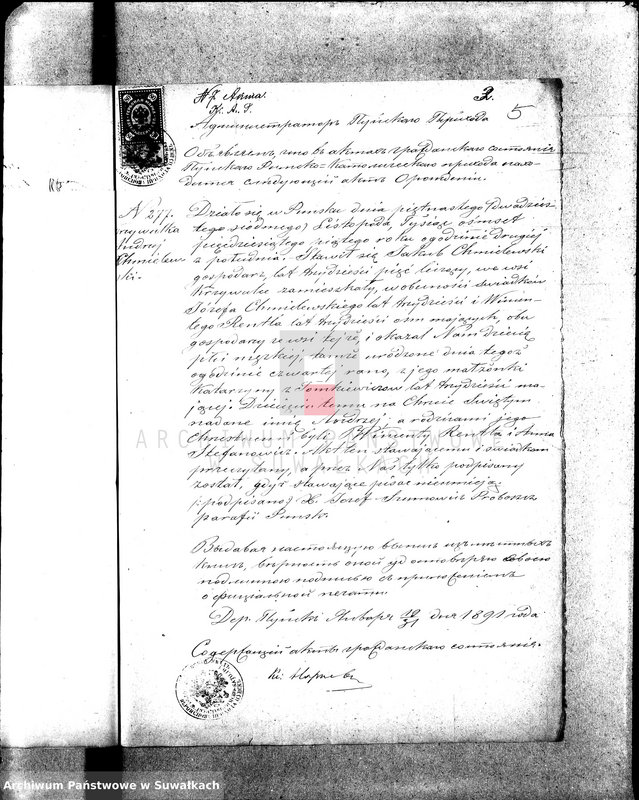 К. А. Р.
2.
5
Администраторъ Пуńскаго Прихода
Объявляетъ, что въ актахъ гражданскаго состоянія
Пуńскаго Римско-Католическаго прихода нахо-
дится слѣдующій актъ О рожденіи.
N 277.
Krzywulka
Andrzej
Chmielew
ski.
Działo się w Puńsku dnia piętnastego /dwudzies-
tego siódmego/ Listopada Tysiąc ośmset
pięćdziesiątego piątego roku o godzinie drugiej
z południa. Stawił się Jakub Chmielewski
gospodarz, lat trzydzieści pięć liczący, we wsi
Krzywulce zamieszkały, w obecności świadków
Józefa Chmielewskiego lat trzydzieści i Wincen-
tego Rentla lat trzydzieści ośm mających, obu
gospodarzy ze wsi tejże, i okazał Nam dziecię
płci męzkiej, tamże urodzone dnia tegoż
o godzinie czwartej rano, z jego małżonki
Katarzyny z Tomkiewiczów lat trzydzieści ma-
jącej. Dziecięciu temu na Chrzcie Świętym
nadane imię Andrzej, a rodzicami jego
Chrzestnemi byli Wincenty Rentla i Anna
Stefanowicz. Akt ten stawającemu i świadkom
przeczytany, a przez Nas tylko podpisany
został, gdyż stawające pisać nieumieją
/:podpisano/ X. Józef Szumowicz Proboszcz
parafii Puńsk.
Выдавая настоящую выпись изъ метрическихъ
книгъ, вѣрность оной удостовѣряю своею
подлинною подписью съ приложеніемъ
оффиціальной печати.
Дер. Пуńскъ Января 19/31 дня 1891 года
Содержащій акты гражданскаго состоянія.
ARCHIWUM PAŃSTWOWE
W SUWAŁKACH
Archiwum Państwowe w Suwałkach